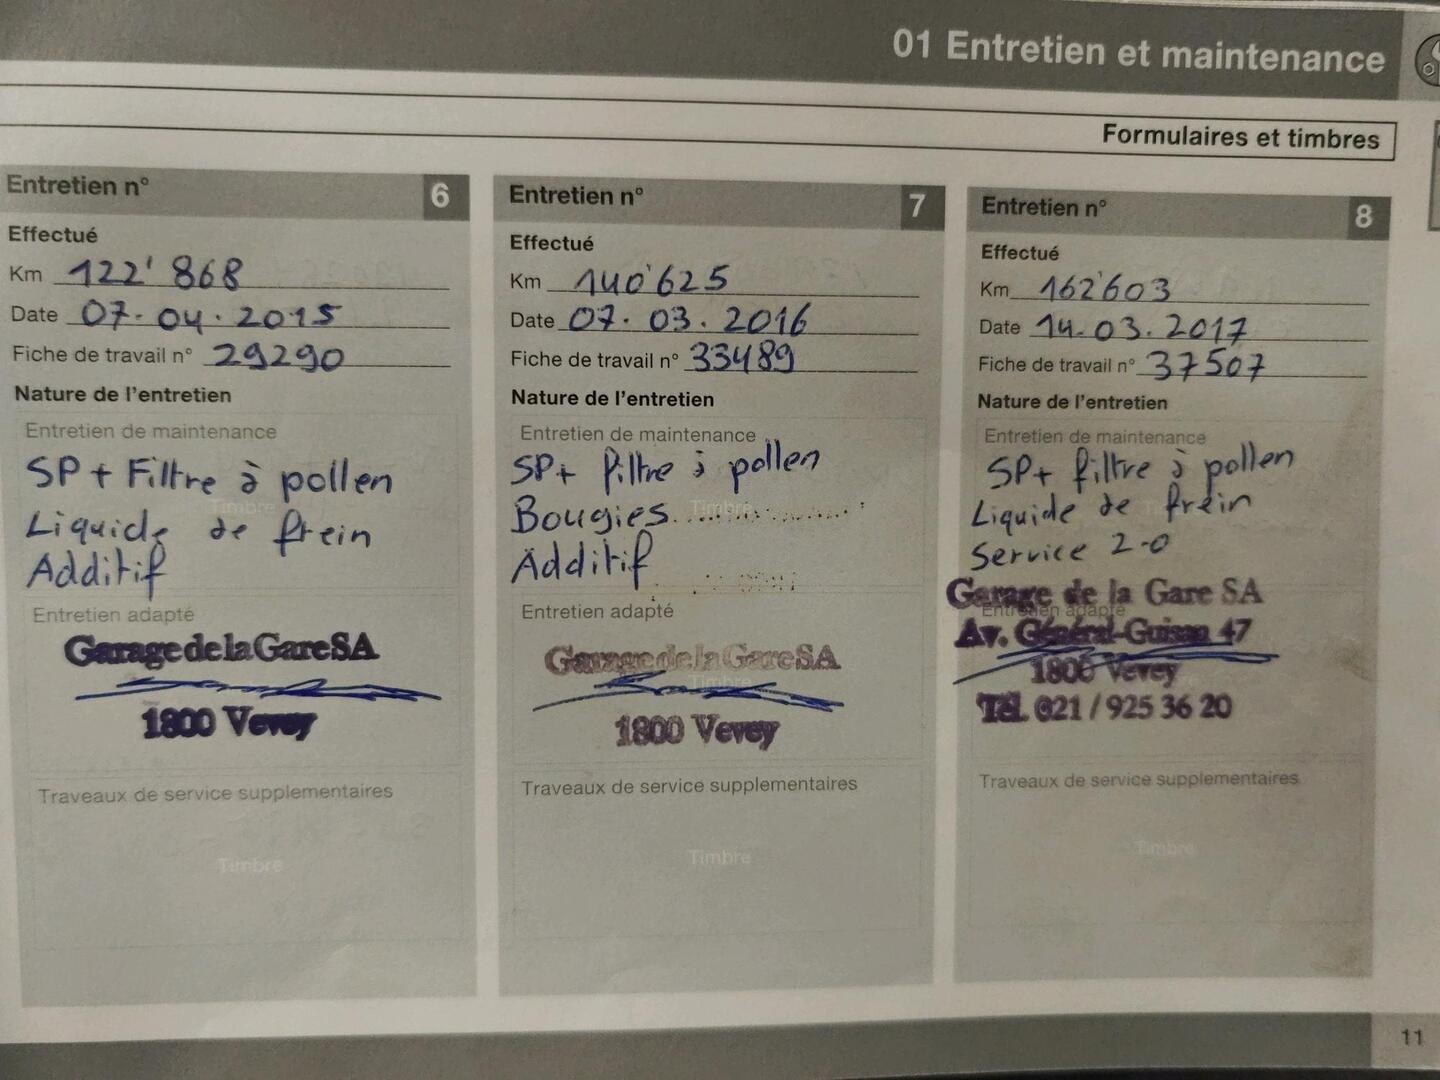 01 Entretien et maintenance
Formulaires et timbres
Entretien n° 6
Effectué
Km 122'868
Date 07.04.2015
Fiche de travail n° 29290
Nature de l'entretien
Entretien de maintenance
SP + Filtre à pollen
Timbre
Liquide de frein
Additif
Entretien adapté
Garage de la Gare SA
1800 Vevey
Traveaux de service supplementaires
Timbre
Entretien n° 7
Effectué
Km 140'625
Date 07.03.2016
Fiche de travail n° 33489
Nature de l'entretien
Entretien de maintenance
SP+ filtre à pollen
Timbre
Bougies
Additif
Entretien adapté
Garage de la Gare SA
Timbre
1800 Vevey
Traveaux de service supplementaires
Timbre
Entretien n° 8
Effectué
Km 162'603
Date 14.03.2017
Fiche de travail n° 37507
Nature de l'entretien
Entretien de maintenance
SP+ filtre à pollen
Liquide de frein
Service 2-0
Garage de la Gare SA
Entretien adapté
Av. Général-Guisan 47
1800 Vevey
Tél. 021 / 925 36 20
Traveaux de service supplementaires
Timbre
11